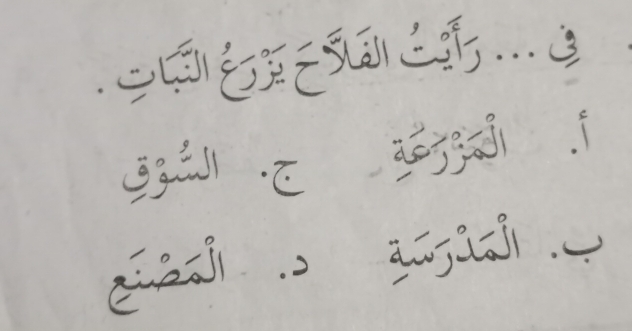 فِي ... رَأَيْتُ الفَلاَّحَ يَزْرَعُ النَّبَاتِ .
أ. الْمَزْرَعَةِ ج. السُّوْقِ
ب. الْمَدْرَسَةِ د. الْمَصْنَعِ